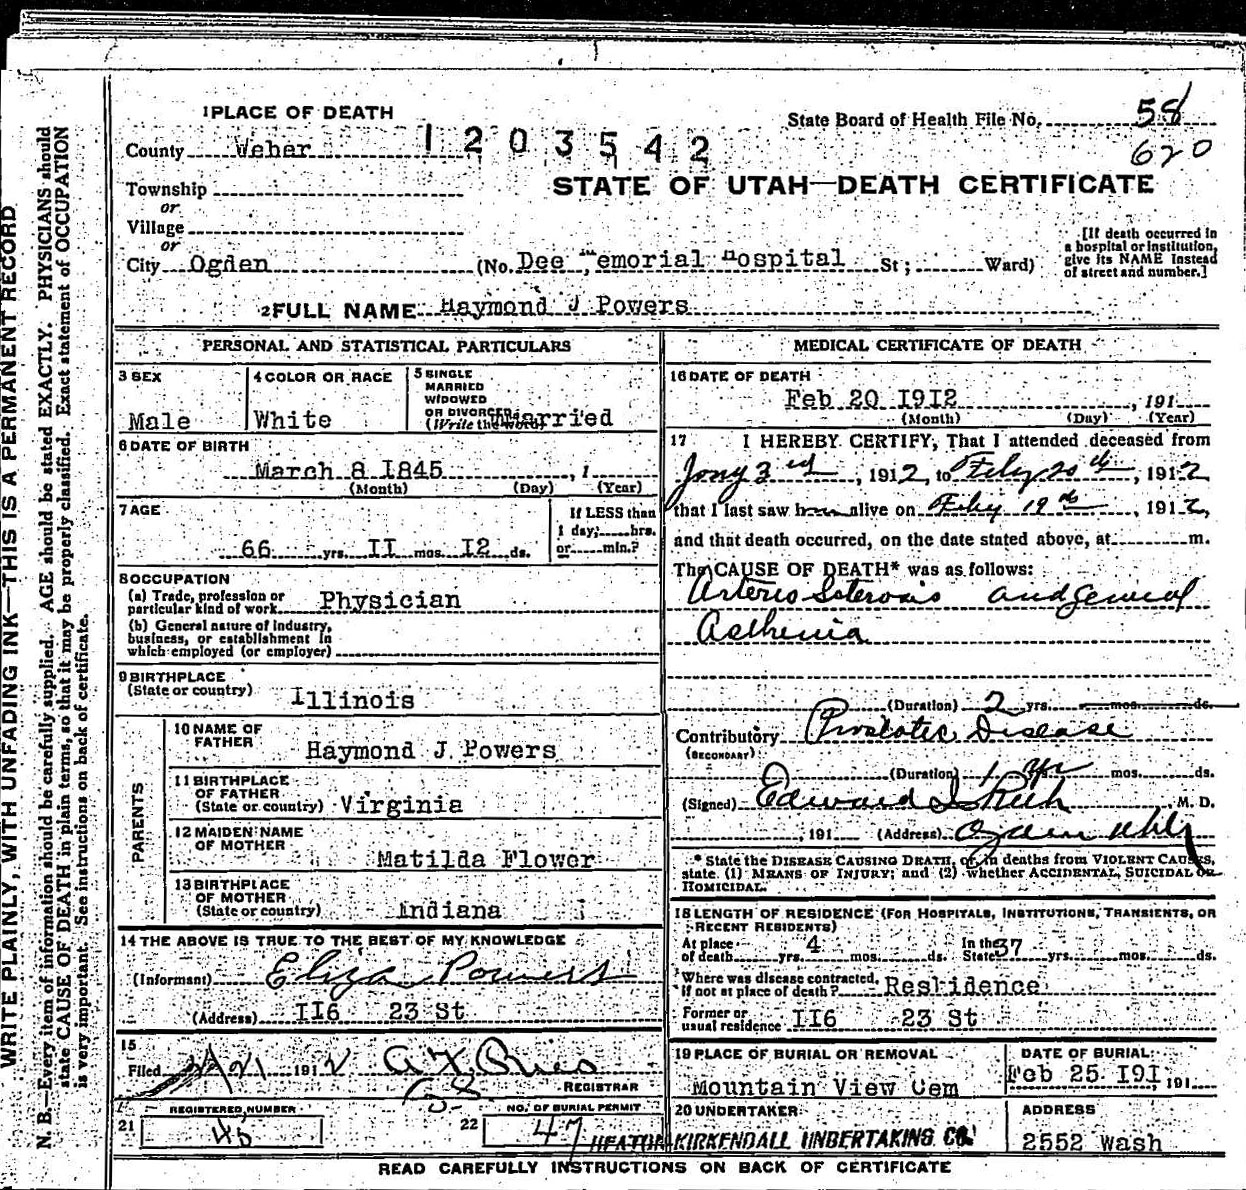 1 PLACE OF DEATH
State Board of Health File No. 58
County Weber
1203542
620
Township
STATE OF UTAH—DEATH CERTIFICATE
or
Village
or
[If death occurred in a hospital or institution, give its NAME instead of street and number.]
City Ogden (No. Dee Memorial Hospital St; Ward)
2 FULL NAME Haymond J Powers
PERSONAL AND STATISTICAL PARTICULARS
3 SEX
Male
4 COLOR OR RACE
White
5 SINGLE
MARRIED
WIDOWED
OR DIVORCED
(Write the word)
Married
6 DATE OF BIRTH
March 8 1845, 1
(Month) (Day) (Year)
7 AGE
66 yrs. II mos. I2 ds.
If LESS than
1 day, hrs.
or min.?
8 OCCUPATION
(a) Trade, profession or
particular kind of work Physician
(b) General nature of industry,
business, or establishment in
which employed (or employer)
9 BIRTHPLACE
(State or country) Illinois
PARENTS
10 NAME OF
FATHER Haymond J. Powers
11 BIRTHPLACE
OF FATHER
(State or country) Virginia
12 MAIDEN NAME
OF MOTHER
Matilda Flower
13 BIRTHPLACE
OF MOTHER
(State or country) Indiana
14 THE ABOVE IS TRUE TO THE BEST OF MY KNOWLEDGE
(Informant) Eliza Powers
(Address) II6 23 St
15
Filed 2/21 1912
REGISTRAR
58
REGISTERED NUMBER
21
NO. OF BURIAL PERMIT
22 47
MEDICAL CERTIFICATE OF DEATH
16 DATE OF DEATH
Feb 20 I9I2, 191
(Month) (Day) (Year)
17 I HEREBY CERTIFY, That I attended deceased from
3rd, 1912, to Feby 20th, 1912
that I last saw him alive on Feby 19th, 1912,
and that death occurred, on the date stated above, at m.
The CAUSE OF DEATH* was as follows:
Arterio Sclerosis and general
Asthenia
(Duration) 2 yrs. mos. ds.
Contributory Prostatic Disease
(SECONDARY)
(Duration) 1 yr mos. ds.
(Signed) Edward I Rich, M. D.
191 (Address) Ogden Utah
* State the DISEASE CAUSING DEATH, or, in deaths from VIOLENT CAUSES,
state (1) MEANS OF INJURY; and (2) whether ACCIDENTAL, SUICIDAL OR
HOMICIDAL.
18 LENGTH OF RESIDENCE (FOR HOSPITALS, INSTITUTIONS, TRANSIENTS, OR
RECENT RESIDENTS)
At place
of death yrs. 4 mos. ds.
In the
State 37 yrs. mos. ds.
Where was disease contracted,
if not at place of death? Residence
Former or
usual residence II6 23 St
19 PLACE OF BURIAL OR REMOVAL
Mountain View Cem
DATE OF BURIAL
Feb 25 I9I, 191
20 UNDERTAKER
KIRKENDALL UNDERTAKING CO.
ADDRESS
2552 Wash
READ CAREFULLY INSTRUCTIONS ON BACK OF CERTIFICATE
WRITE PLAINLY, WITH UNFADING INK—THIS IS A PERMANENT RECORD
N. B.—Every item of information should be carefully supplied. AGE should be stated EXACTLY. PHYSICIANS should
state CAUSE OF DEATH in plain terms, so that it may be properly classified. Exact statement of OCCUPATION
is very important. See instructions on back of certificate.